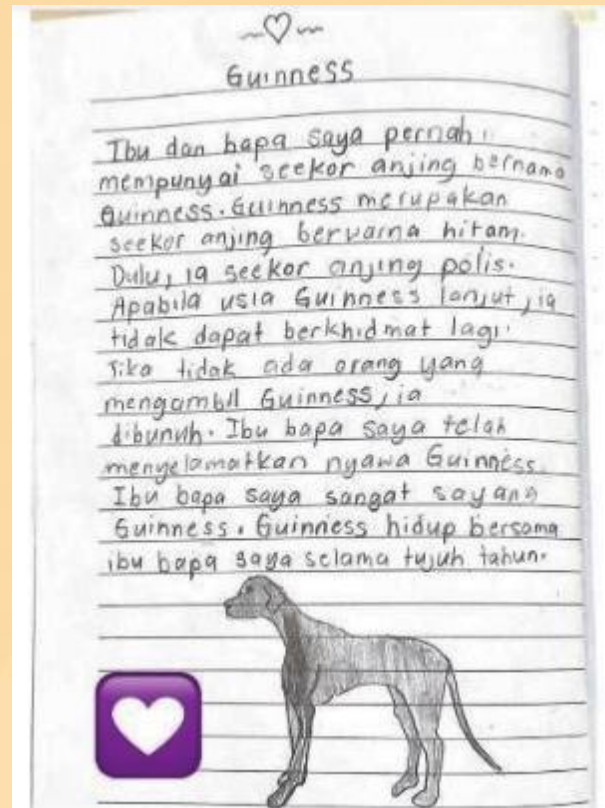 Guinness
Ibu dan bapa saya pernah
mempunyai seekor anjing bernama
Guinness. Guinness merupakan
seekor anjing berwarna hitam.
Dulu, ia seekor anjing polis.
Apabila usia Guinness lanjut, ia
tidak dapat berkhidmat lagi.
Jika tidak ada orang yang
mengambil Guinness, ia
dibunuh. Ibu bapa saya telah
menyelamatkan nyawa Guinness.
Ibu bapa saya sangat sayang
Guinness. Guinness hidup bersama
ibu bapa saya selama tujuh tahun.